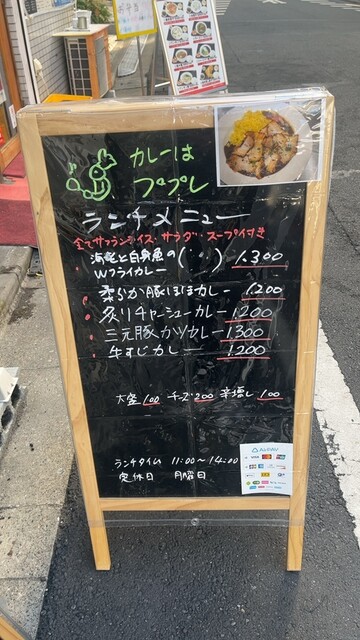 カレーは
ププレ
ランチメニュー
全てサフランライス・サラダ・スープ付き
海老と白身魚の(・・) 1.300
Wフライカレー
柔らか豚ほほカレー 1.200
炙りチャーシューカレー 1200
三元豚カツカレー 1300
牛すじカレー 1.200
大盛100 チーズ200 辛増し100
ランチタイム 11:00~14:00
定休日 月曜日
AirPAY
VISA